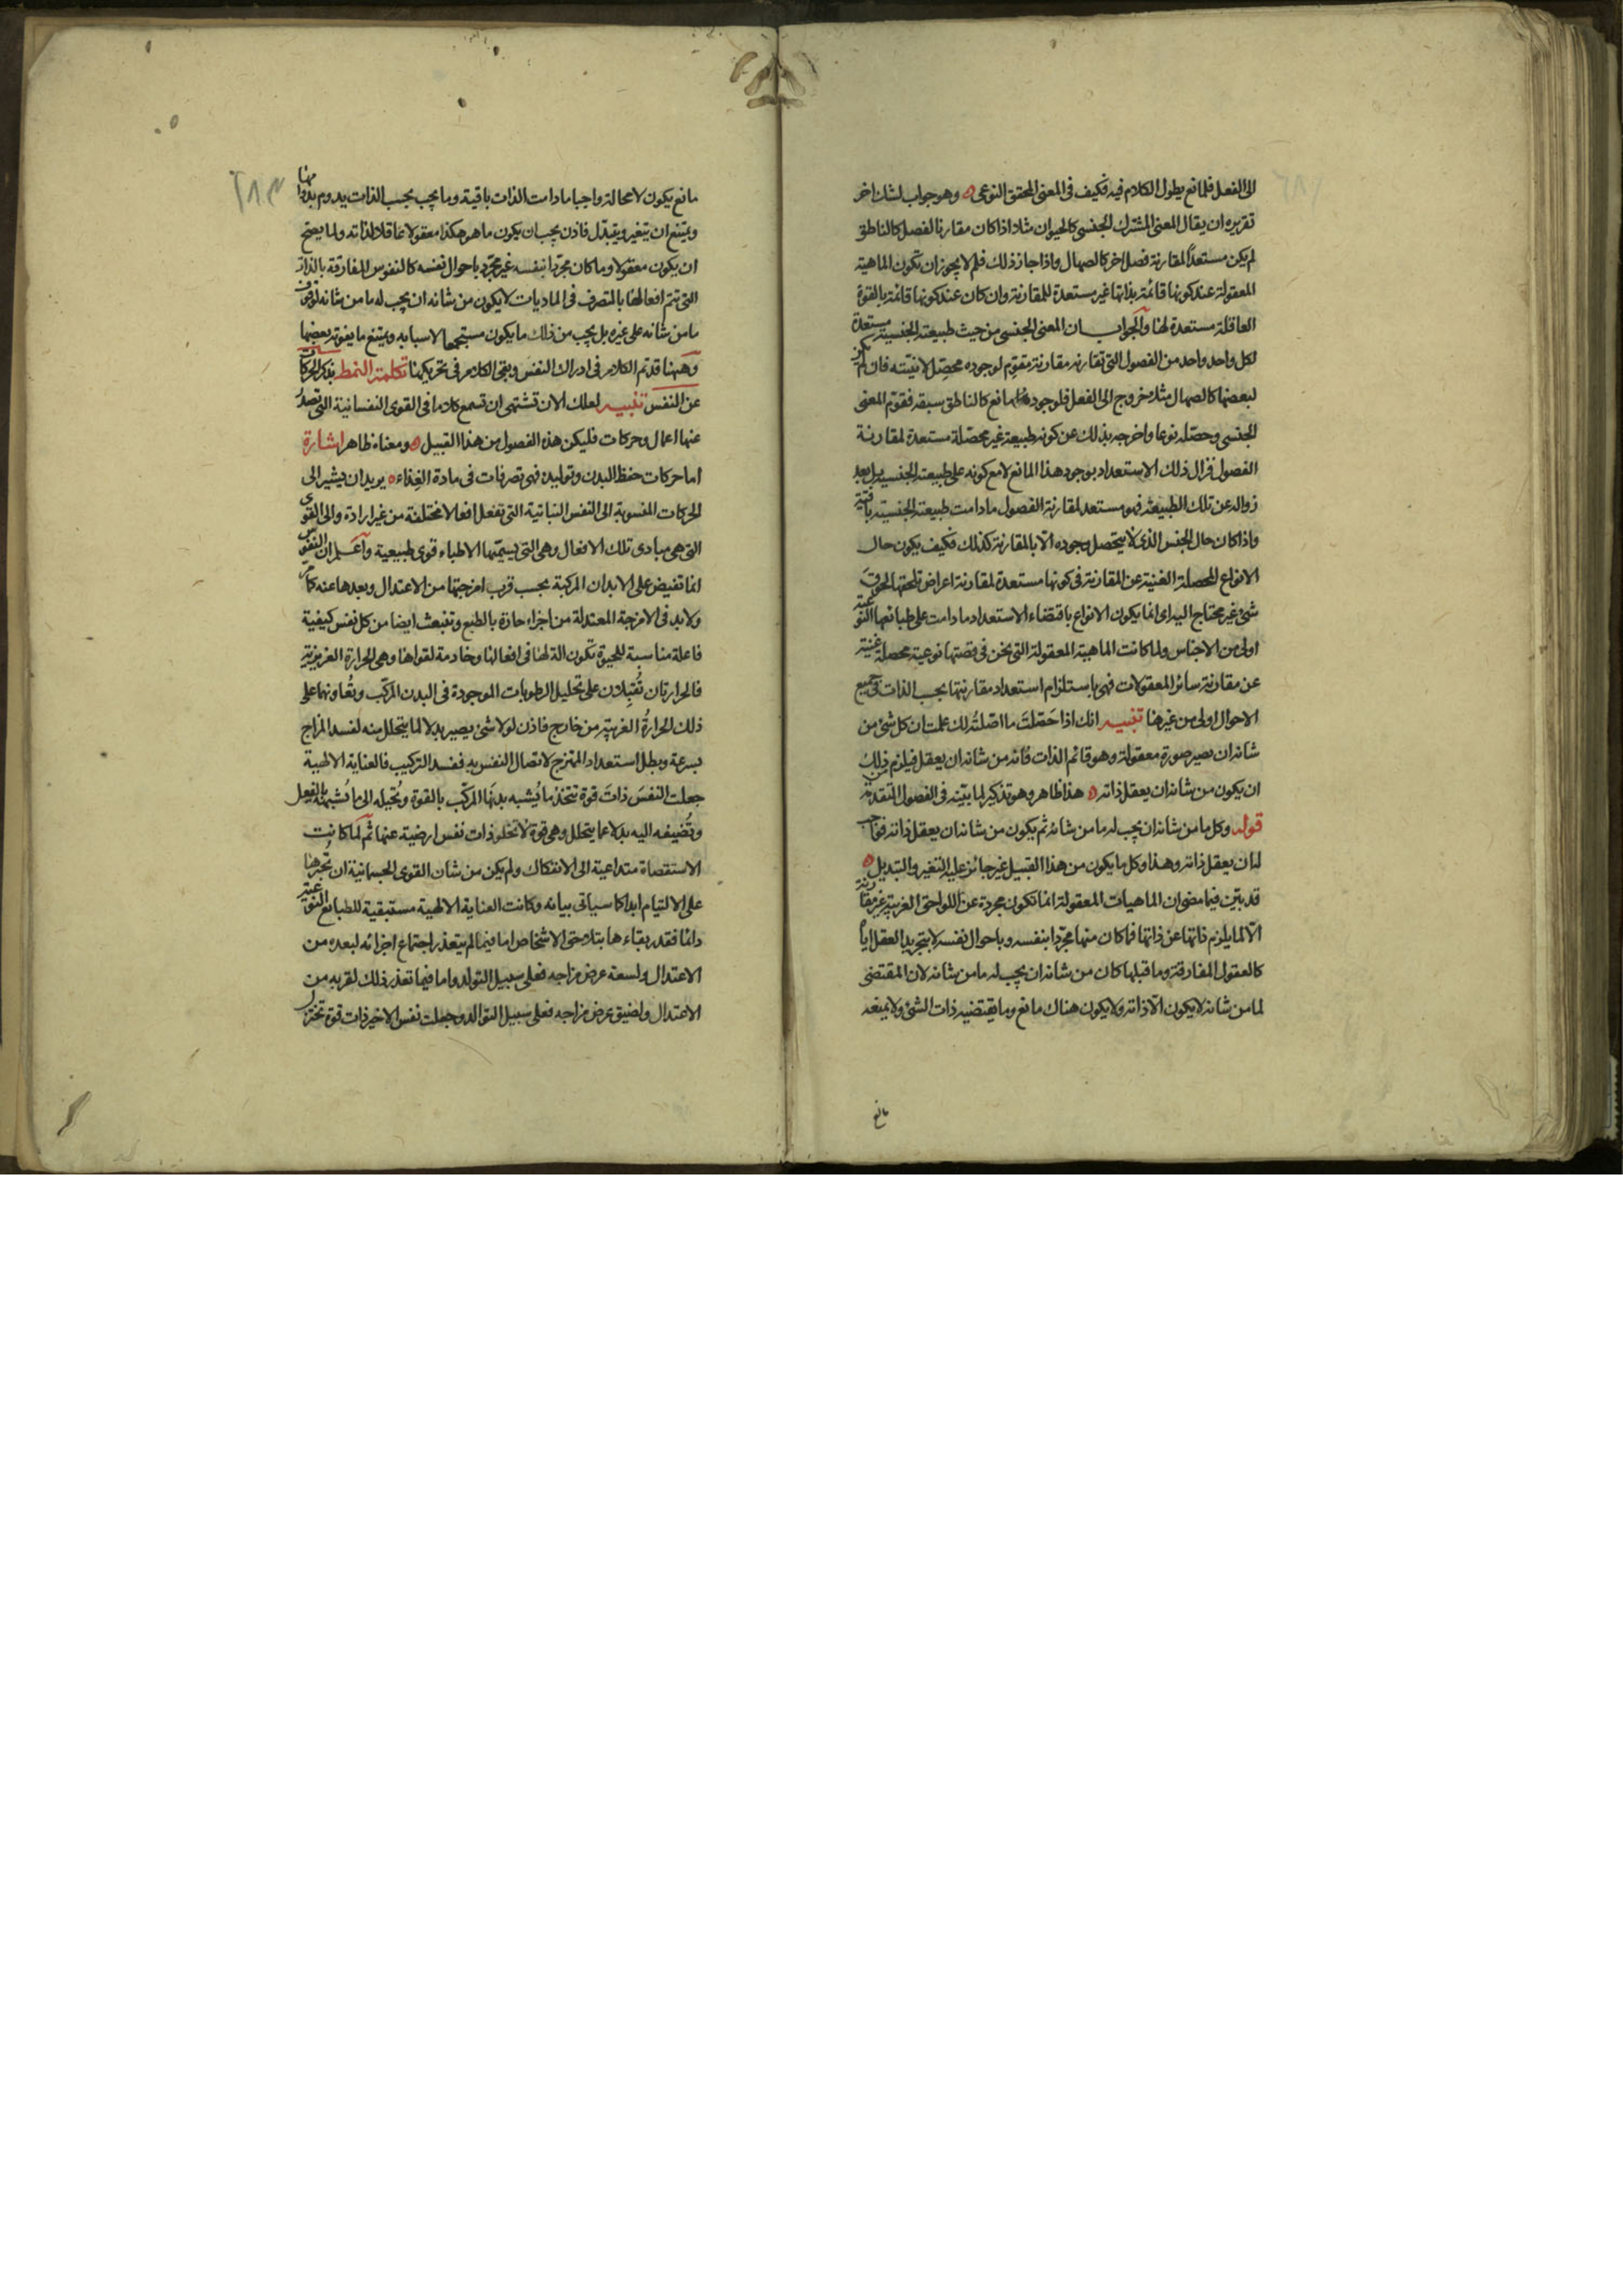 الى الفعل فلمانع يطول الكلام فيه فكيف فى المعنى المحقق النوعى ه وهو جواب لشك اخر
تقريره ان يقال المعنى المشترك الجنسى كالحيوان مثلا اذا كان مقارنا لفصل كالناطق
لم يكن مستعدا لمقارنة فصل اخر كالصهال واذا جاز ذلك فلم لا يجوز ان تكون الماهية
المعقولة عند كونها قائمة بذاتها غير مستعدة للمقارنة وان كان عند كونها قائمة بالقوة
العاقلة مستعدة لها والجواب ان المعنى الجنسى من حيث طبيعته الجنسية مستعدة
لكل واحد واحد من الفصول التى تقارنه مقارنة مقوم لوجوده محصل لانيته فان لم يكن
لبعضها كالصهال مثلا خروج الى الفعل فلوجود مانع كالناطق سبقه فقوم المعنى
الجنسى وحصّله نوعا واخرجه بذلك عن كونه طبيعة غير محصّلة مستعدة لمقارنة
الفصول فزال ذلك الاستعداد بوجود هذا المانع لا مع كونه على طبيعته الجنسية بل بعد
زواله عن تلك الطبيعة فهو مستعد لمقارنة الفصول ما دامت طبيعته الجنسية باقية
واذا كان حال الجنس الذى لا يتحصل وجوده الا بالمقارنة كذلك فكيف يكون حال
الانواع المحصلة الغنية عن المقارنة فى كونها مستعدة لمقارنة اعراض تلحقها لحوق
شئ غير محتاج اليه اى انما يكون الانواع باقتضاء الاستعداد ما دامت على طبائعها النوعية
اولى من الاجناس ولما كانت الماهية المعقولة التى نحن فى قصتها نوعية محصلة غنية
عن مقارنة سائر المعقولات فهى باستلزام استعداد مقارنتها بحسب الذات فى جميع
الاحوال اولى من غيرها تنبيه انك اذا حَصّلتَ ما اصّلتُه لك علمت ان كل شئ من
شانه ان يصير صورة معقولة وهو قائم الذات فانه من شانه ان يعقل فيلزم من ذلك
ان يكون من شانه ان يعقل ذاته ه هذا ظاهر وهو تذكير لما بيّنه فى الفصول المتقدمة
قوله وكل ما من شانه ان يجب له ما من شانه ثم يكون من شانه ان يعقل ذاته فواجب
له ان يعقل ذاته وهذا وكل ما يكون من هذا القبيل غير جائز عليه التغير والتبديل ه
قد بيّن فيما مضى ان الماهيات المعقولة انما تكون مجردة عن اللواحق الغريبة غير مقارنة
الّا لما يلزم ذاتها عن ذاتها فما كان منها مجرّدا بنفسه وباحوال نفسه لا بتجريد العقل اياه
كالعقول المفارقة وما قبلها كان من شانه ان يجب له ما من شانه لان المقتضى
لما من شانه لا يكون الّا ذاته ولا يكون هناك مانع وما يقتضيه ذات الشئ ولا يمنعه
مانع
مانع يكون لا محالة واجبا ما دامت الذات باقية وما يجب بحسب الذات يدوم بدوامها
ويمتنع ان يتغير ويتبدّل فاذن يجب ان يكون ما هو هكذا معقولا عاقلا لذاته ولما يصح
ان يكون معقولا وما كان مجردا بنفسه غير مجرّد باحوال نفسه كالنفوس المفارقة بالذات
التى تتم افعالها بالتصرف فى الماديات لا يكون من شانه ان يجب له ما من شانه لتوقف
ما من شانه على غيره بل يجب من ذلك ما يكون مستجمعا لاسبابه ويمتنع ما يفوته بعضها
وههنا قد تم الكلام فى ادراك النفس وبقى الكلام فى تحريكها تكلمة النمط بذكر الحركات
عن النفس تنبيه لعلك الان تشتهى ان تسمع كلاما فى القوى النفسانية التى تصدُر
عنها اعمال وحركات فليكن هذه الفصول من هذا القبيل ه ومعناه ظاهر اشارة
اما حركات حفظ البدن وتوليده فهى تصرفات فى مادة الغِذاء ه يريد ان يشير الى
الحركات المنسوبة الى النفس النباتية التى تفعل افعالا مختلفة من غير ارادة والى القوى
التى هى مبادى تلك الافعال وهى التى يسميها الاطباء قوى طبيعية واعلم ان النفوس
انما تفيض على الابدان المركبة بحسب قرب امزجتها من الاعتدال وبعدها عنه كما مر
ولا بد فى الامزجة المعتدلة من اجزاء حارة بالطبع وتنبعث ايضا من كل نفس كيفية
فاعلة مناسبة للحيوة تكون الة لها فى افعالها وخادمة لقواها وهى الحرارة الغريزية
فالحرارتان تُقبِلان على تحليل الرطوبات الموجودة فى البدن المركّب وتُعاونهما على
ذلك الحرارةُ الغريبة من خارج فاذن لولا شئ يصير بدلا لما يتحلل منه لفسد المزاج
بسرعة وبطل استعداد الممتزج لاتصال النفس به ففسد التركيب فالعناية الالهية
جعلت النفسَ ذاتَ قوة تتخذ ما يُشبه بدنَها المركّب بالقوة وتُحيله الى ما يُشبهه بالفعل
وتُضيفه اليه بدلا عما يتحلل وهى قوة لا تخلو ذات نفس ارضية عنها ثم لما كانت
الاستقصاة متداعية الى الانفكاك ولم يكن من شان القوى الجسمانية ان تُجبرها
على الالتيام ابدا كما سياتى بيانه وكانت العناية الالهية مستبقية للطبائع النوعية
دائما فقدر بقاءها بتلاحق الاشخاص اما فيما لم يتعذر اجتماع اجزائه لبعده من
الاعتدال ولسعة عرض مزاجه فعلى سبيل التولد واما فيما تعذر ذلك لقربه من
الاعتدال ولضيق عرض مزاجه فعلى سبيل التوالد وجعلت نفس الاخير ذات قوة تختزل